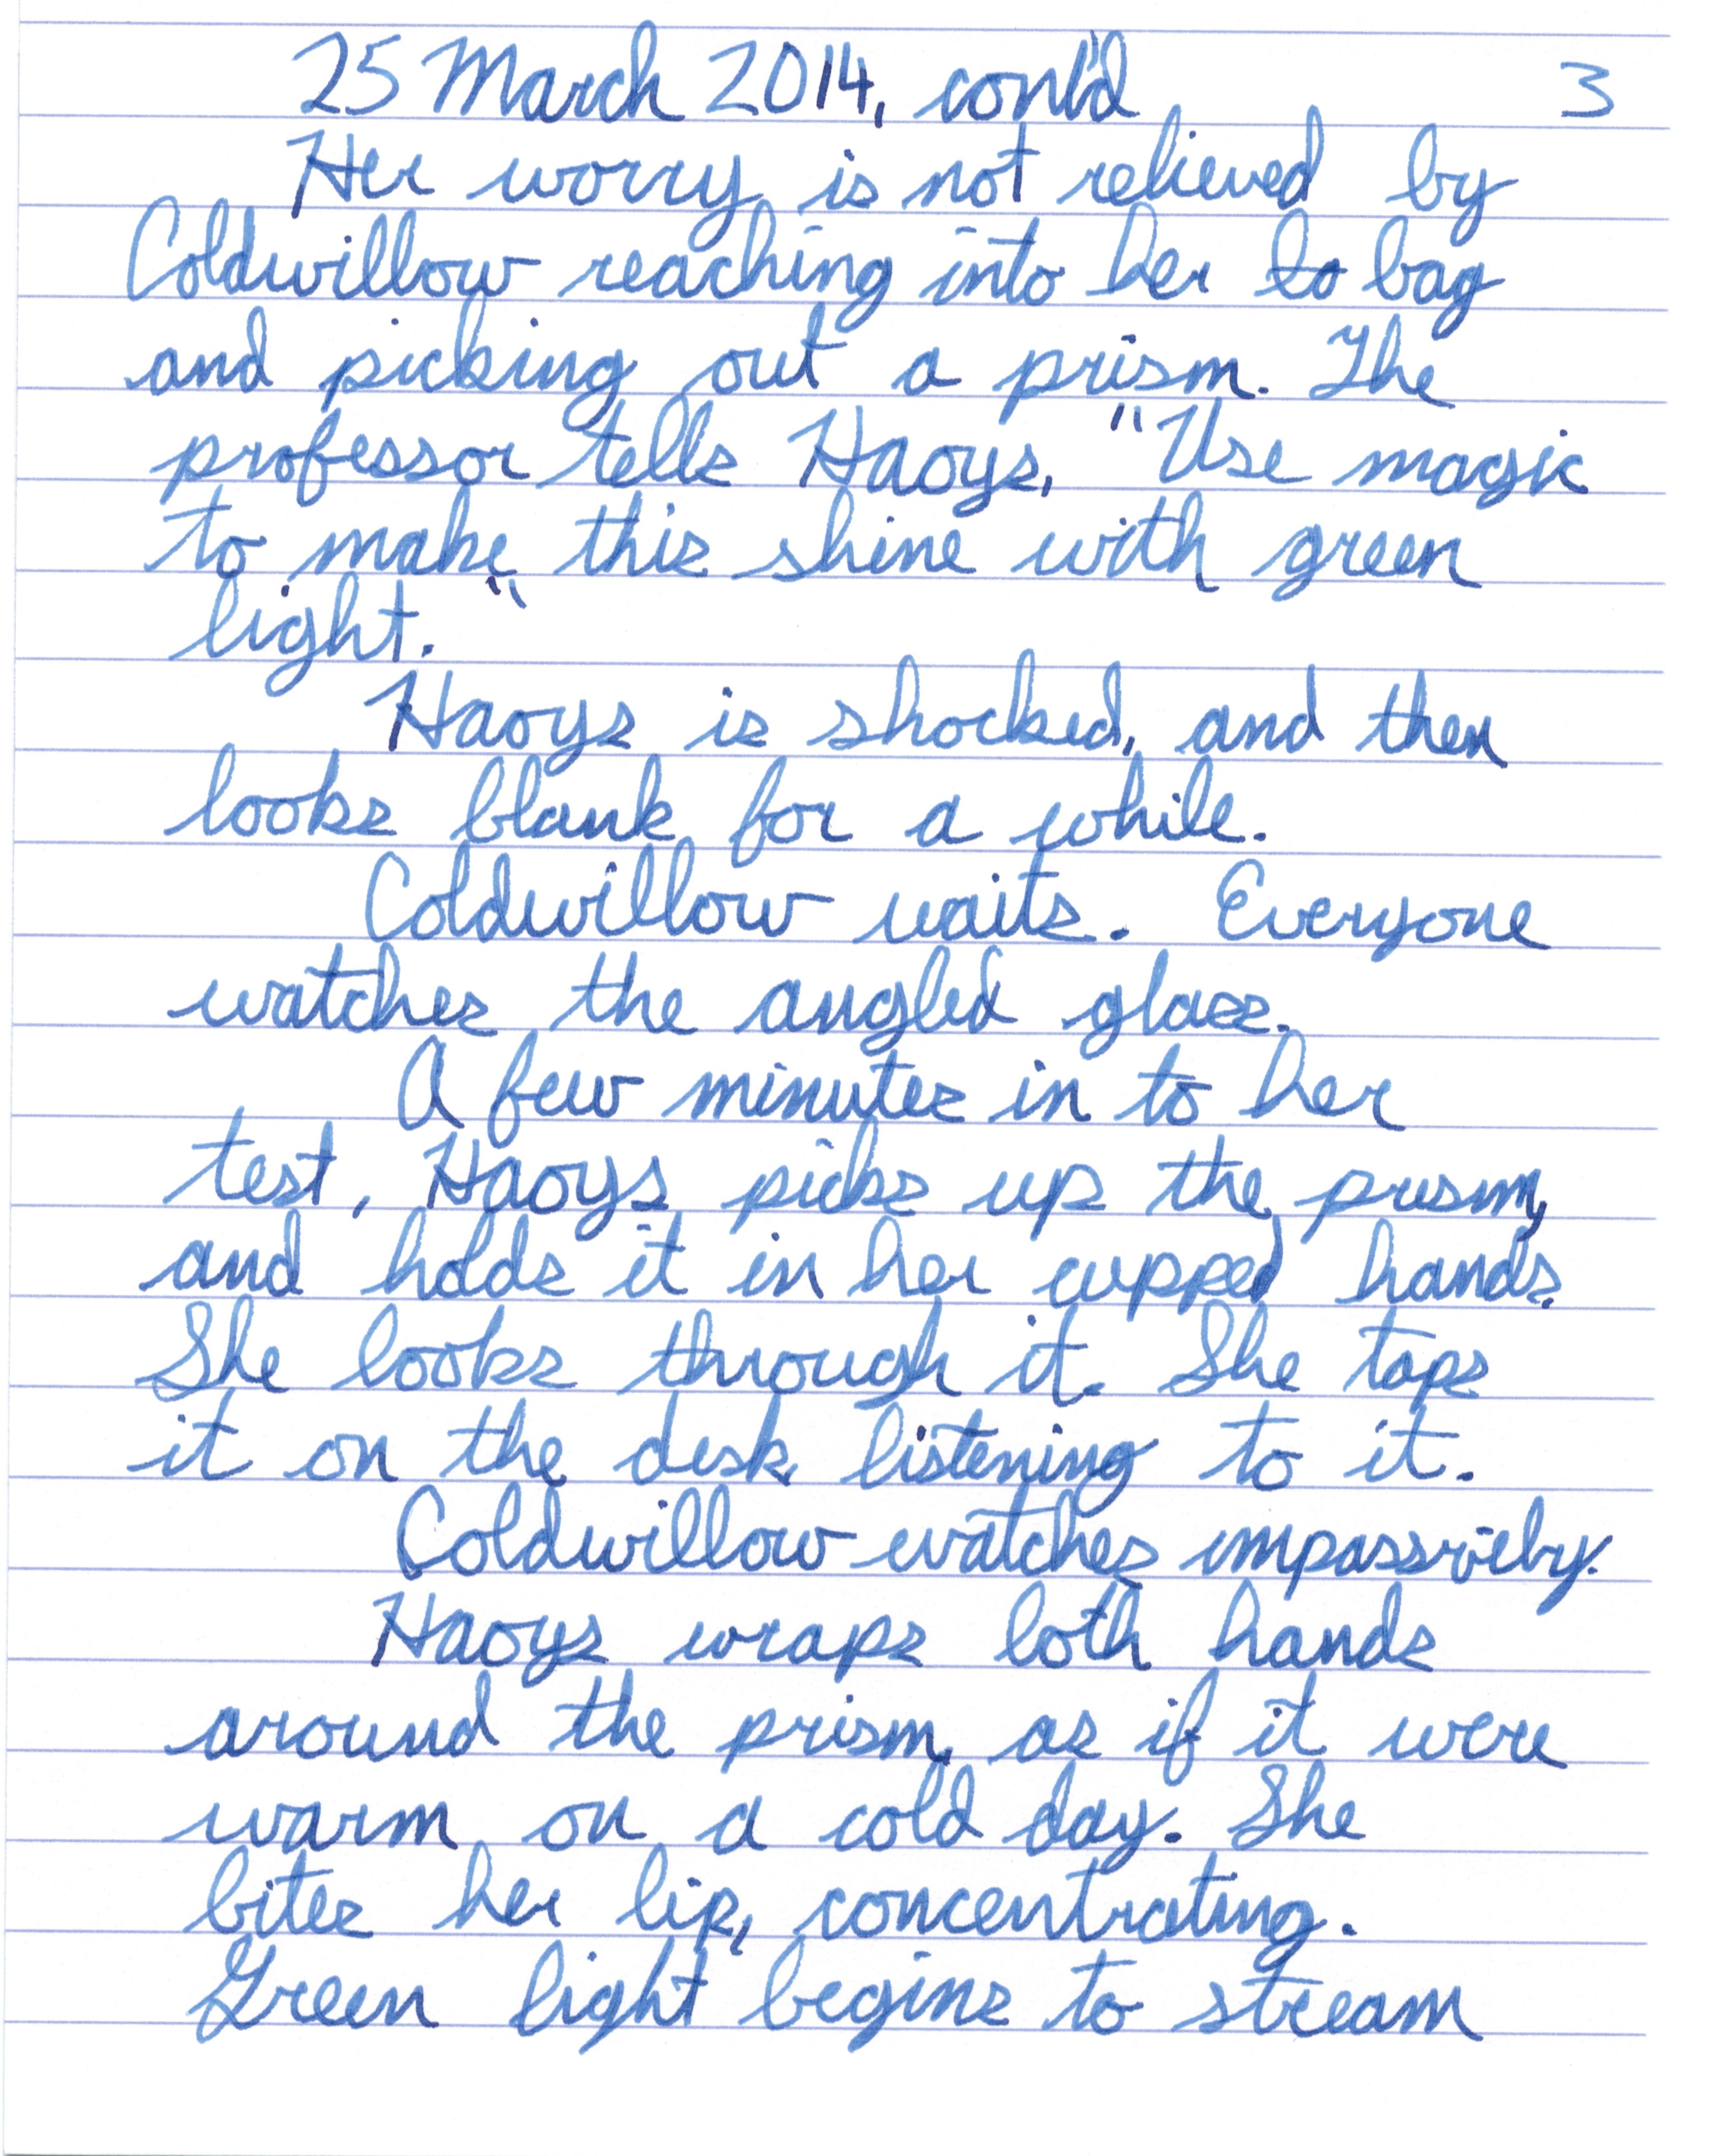 25 March 2014, cont'd 3
Her worry is not relieved by
Coldwillow reaching into her to bag
and picking out a prism. The
professor tells Haoys, "Use magic
to make this shine with green
light."
Haoys is shocked, and then
looks blank for a while.
Coldwillow waits. Everyone
watches the angled glass.
A few minutes in to her
test, Haoys picks up the prism,
and holds it in her cupped hands.
She looks through it. She taps
it on the desk listening to it.
Coldwillow watches impassively.
Haoys wraps both hands
around the prism as if it were
warm on a cold day. She
bites her lip, concentrating.
Green light begins to stream